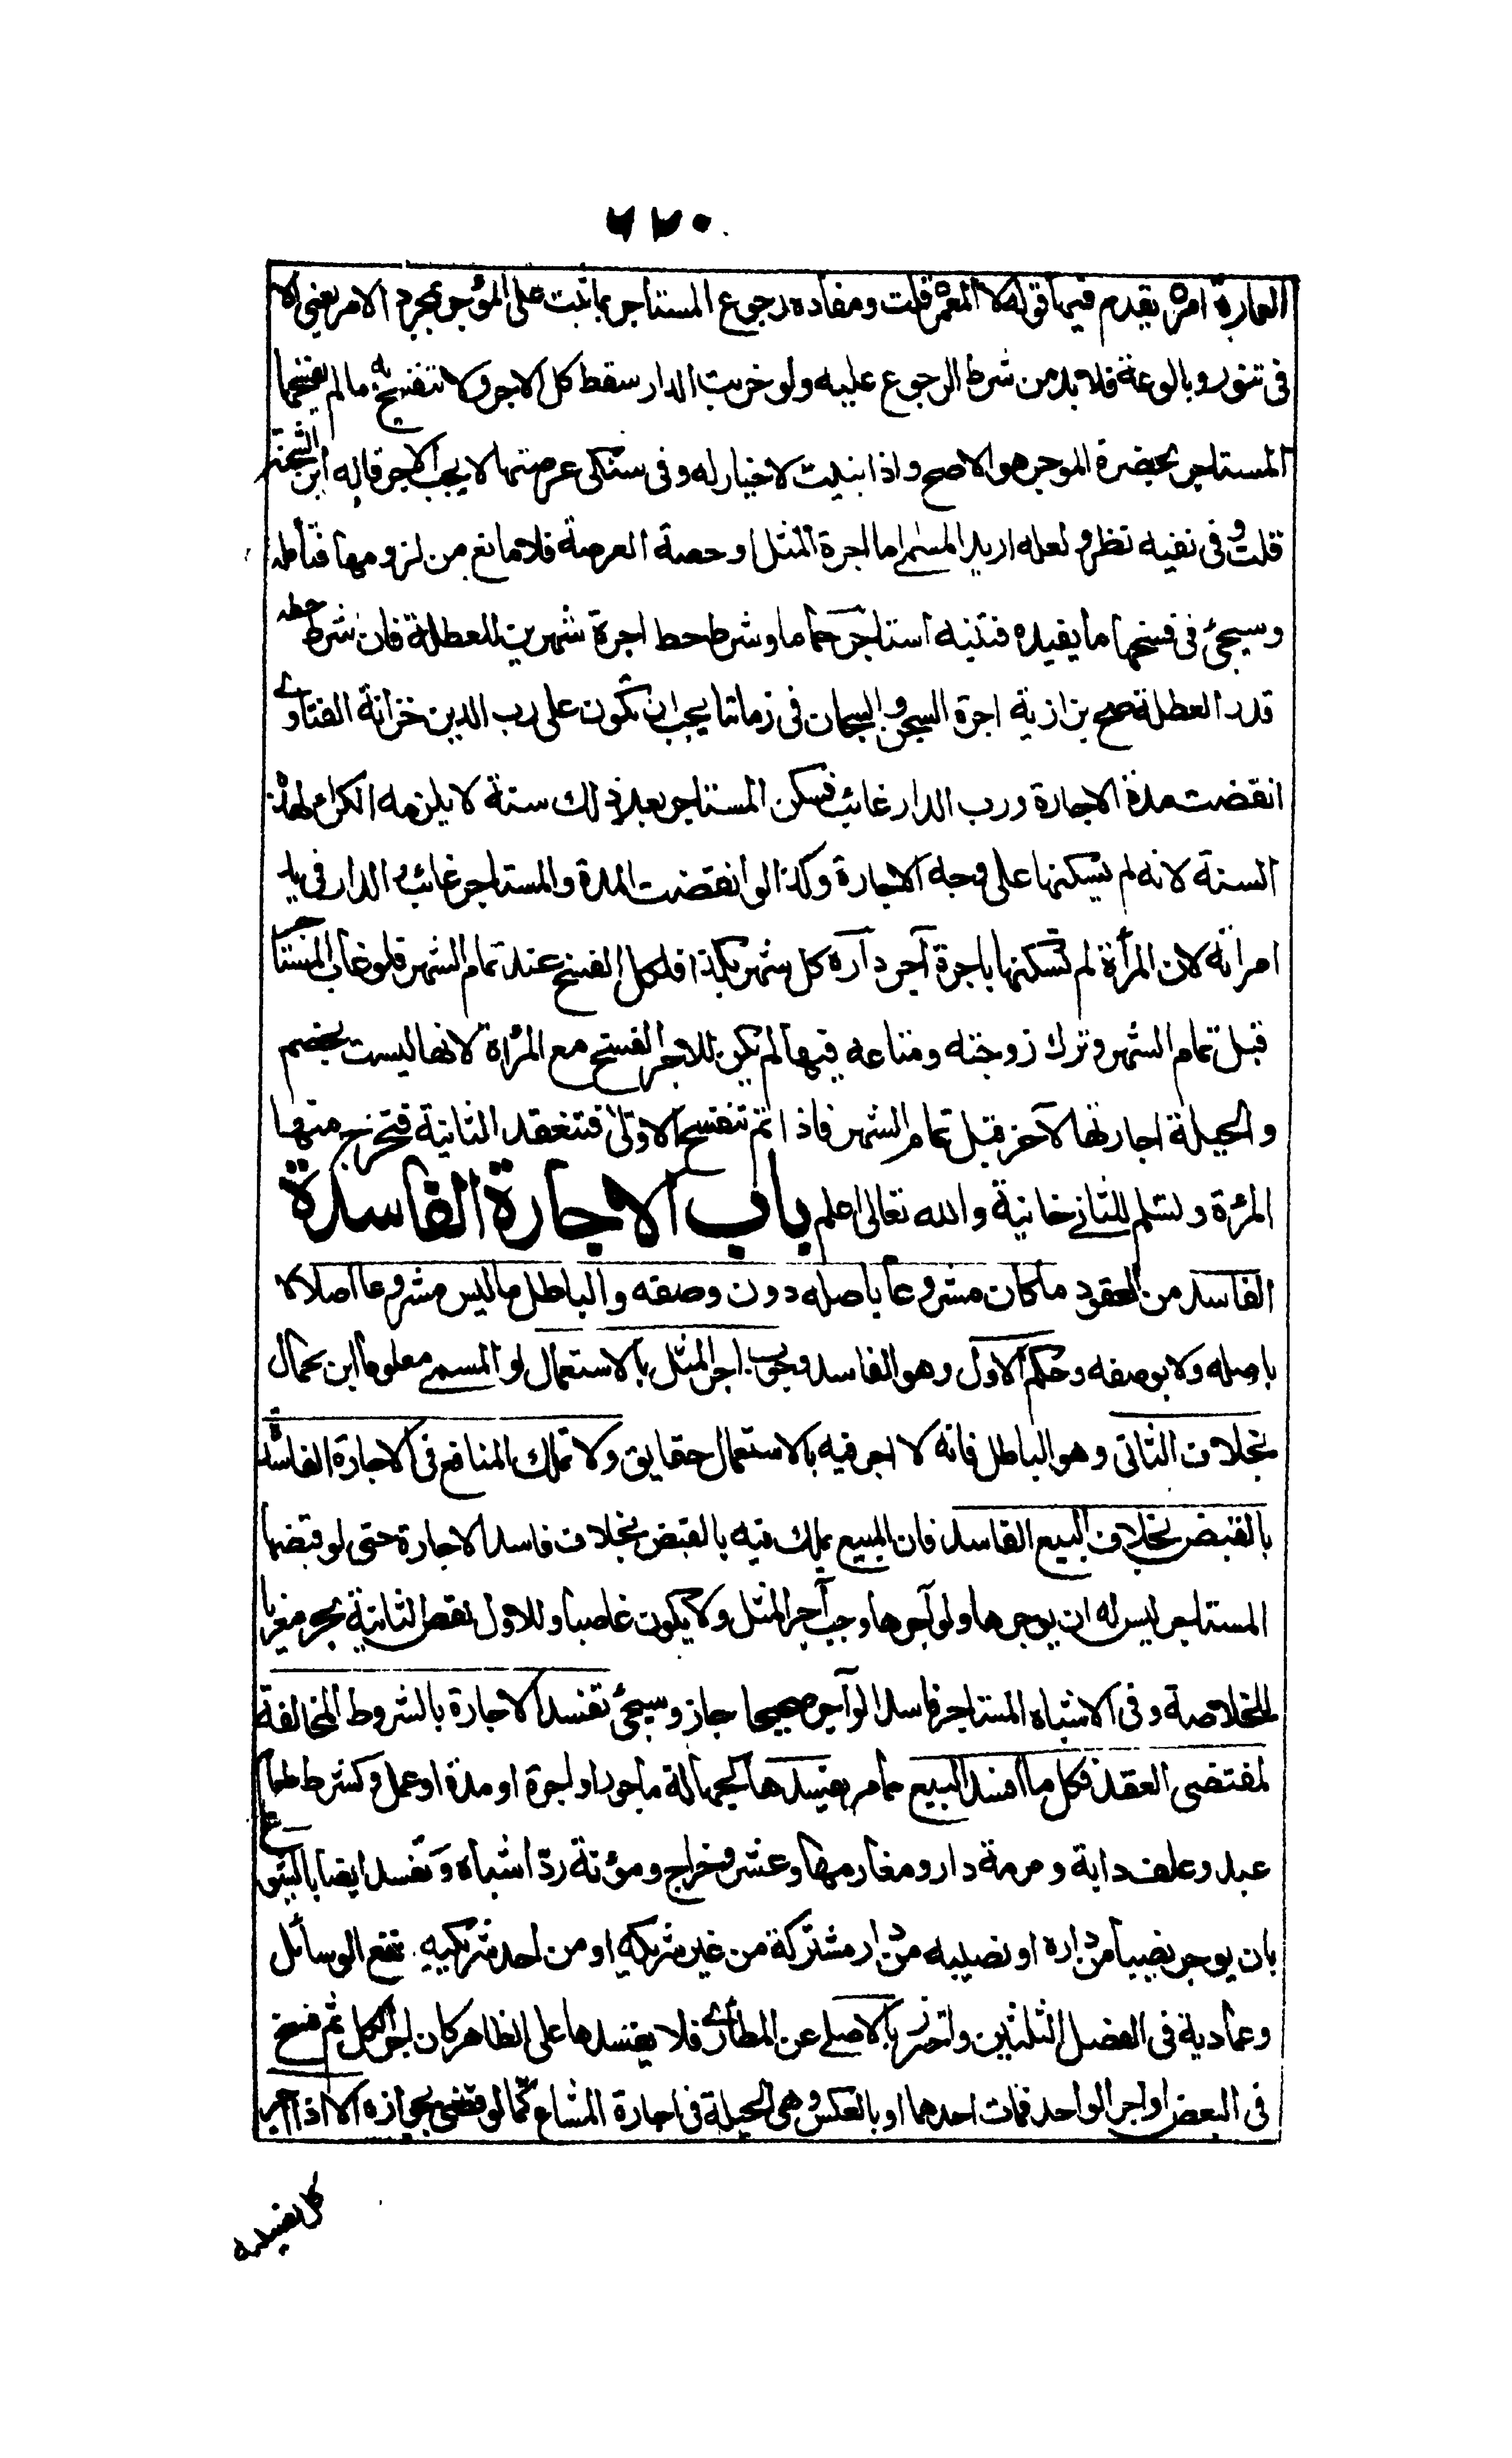 ٧٢٠
العمارة امره يقدم فيها قوله لا المعمر قلت ومفاده رجوع المستاجر بما ثبت على المؤجر بمجرد الامر يعنى الا
فى تنور وبالوعة فلا بد من شرط الرجوع عليه ولو خربت الدار سقط كل الاجر ولا تنفسخ به ما لم يفسخها
المستاجر بحضرة الموجر هو الاصح واذا بنيت لا خيار له وفى سكنى عرصتها لا يجب الاجر قاله ابن الشحنة
قلت وفى نفيه نظر ولعله اريد المسمى اما اجرة المثل او حصة العرصة فلا مانع من لزومها فتأمله
وسيجئ فى فسخها ما يفيده فتنبه استاجر حماما وشرط حط اجرة شهرين للعطلة فان شرط حطه
قدر العطلة صح بزازية اجرة السجن والسجان فى زماننا يجب ان تكون على رب الدين خزانة الفتاوے
انقضت مدة الاجارة ورب الدار غائب فسكن المستاجر بعد ذلك سنة لا يلزمه الكراء لهذه
السنة لانه لم يسكنها على وجه الاجارة وكذا لو انقضت المدة والمستاجر غائب والدار فى يد
امراته لان المرأة لم تسكنها باجرة آجر داره كل شهر بكذا فلكل الفسخ عند تمام الشهر فلو غاب المستأجر
قبل تمام الشهر وترك زوجته ومتاعه فيها لم يكن للاجر الفسخ مع المرأة لانها ليست بخصم
والحيلة اجارتها لآخر قبل تمام الشهر فاذا تم تنفسخ الاولى فتنعقد الثانية فتخرج منها
المرأة وتسلم للثانے خانية والله تعالى اعلم باب الاجارة الفاسدة
الفاسد من العقود ما كان مشروعا باصله دون وصفه والباطل ما ليس مشروعا اصلا لا
باصله ولا بوصفه وحكم الاول وهو الفاسد وجوب اجر المثل بالاستعمال لو المسمى معلوما ابن كمال
بخلاف الثانى وهو الباطل فانه لا اجر فيه بالاستعمال حقايق ولا تملك المنافع فى الاجارة الفاسدة
بالقبض بخلاف البيع الفاسد فان المبيع يملك فيه بالقبض بخلاف فاسد الاجارة حتى لو قبضها
المستاجر ليس له ان يوجرها ولو آجرها وجب آجر المثل ولا يكون غاصبا وللاول نقض الثانية بحر معزيا
للخلاصة وفى الاشباه المستاجر فاسدا لو آجر صحيحا جاز وسيجئ تفسد الاجارة بالشروط المخالفة
لمقتضى العقد فكل ما افسد البيع مما مر يفسدها كجهالة ماجور او اجرة او مدة او عمل وكشرط طعام
عبد وعلف دابة ومرمة دار ومغارمها وعشر وخراج ومؤنة ردّ اشباه وتفسد ايضا بالشيوع
بان يوجر نصيبا من داره او نصيبه من دار مشتركة من غير شريكه او من احد شريكيه نفع الوسائل
وعمادية فى الفصل الثلثين واحترز بالاصلے عن الطارئ فلا يفسدها على الظاهر كان اجر الكل ثم فسخ
فى البعض او اجر الواحد فمات احدهما او بالعكس وهى الحيلة فى اجارة المشاع كما لو قضى بجوازه الا اذا آجر
كل نصيبه